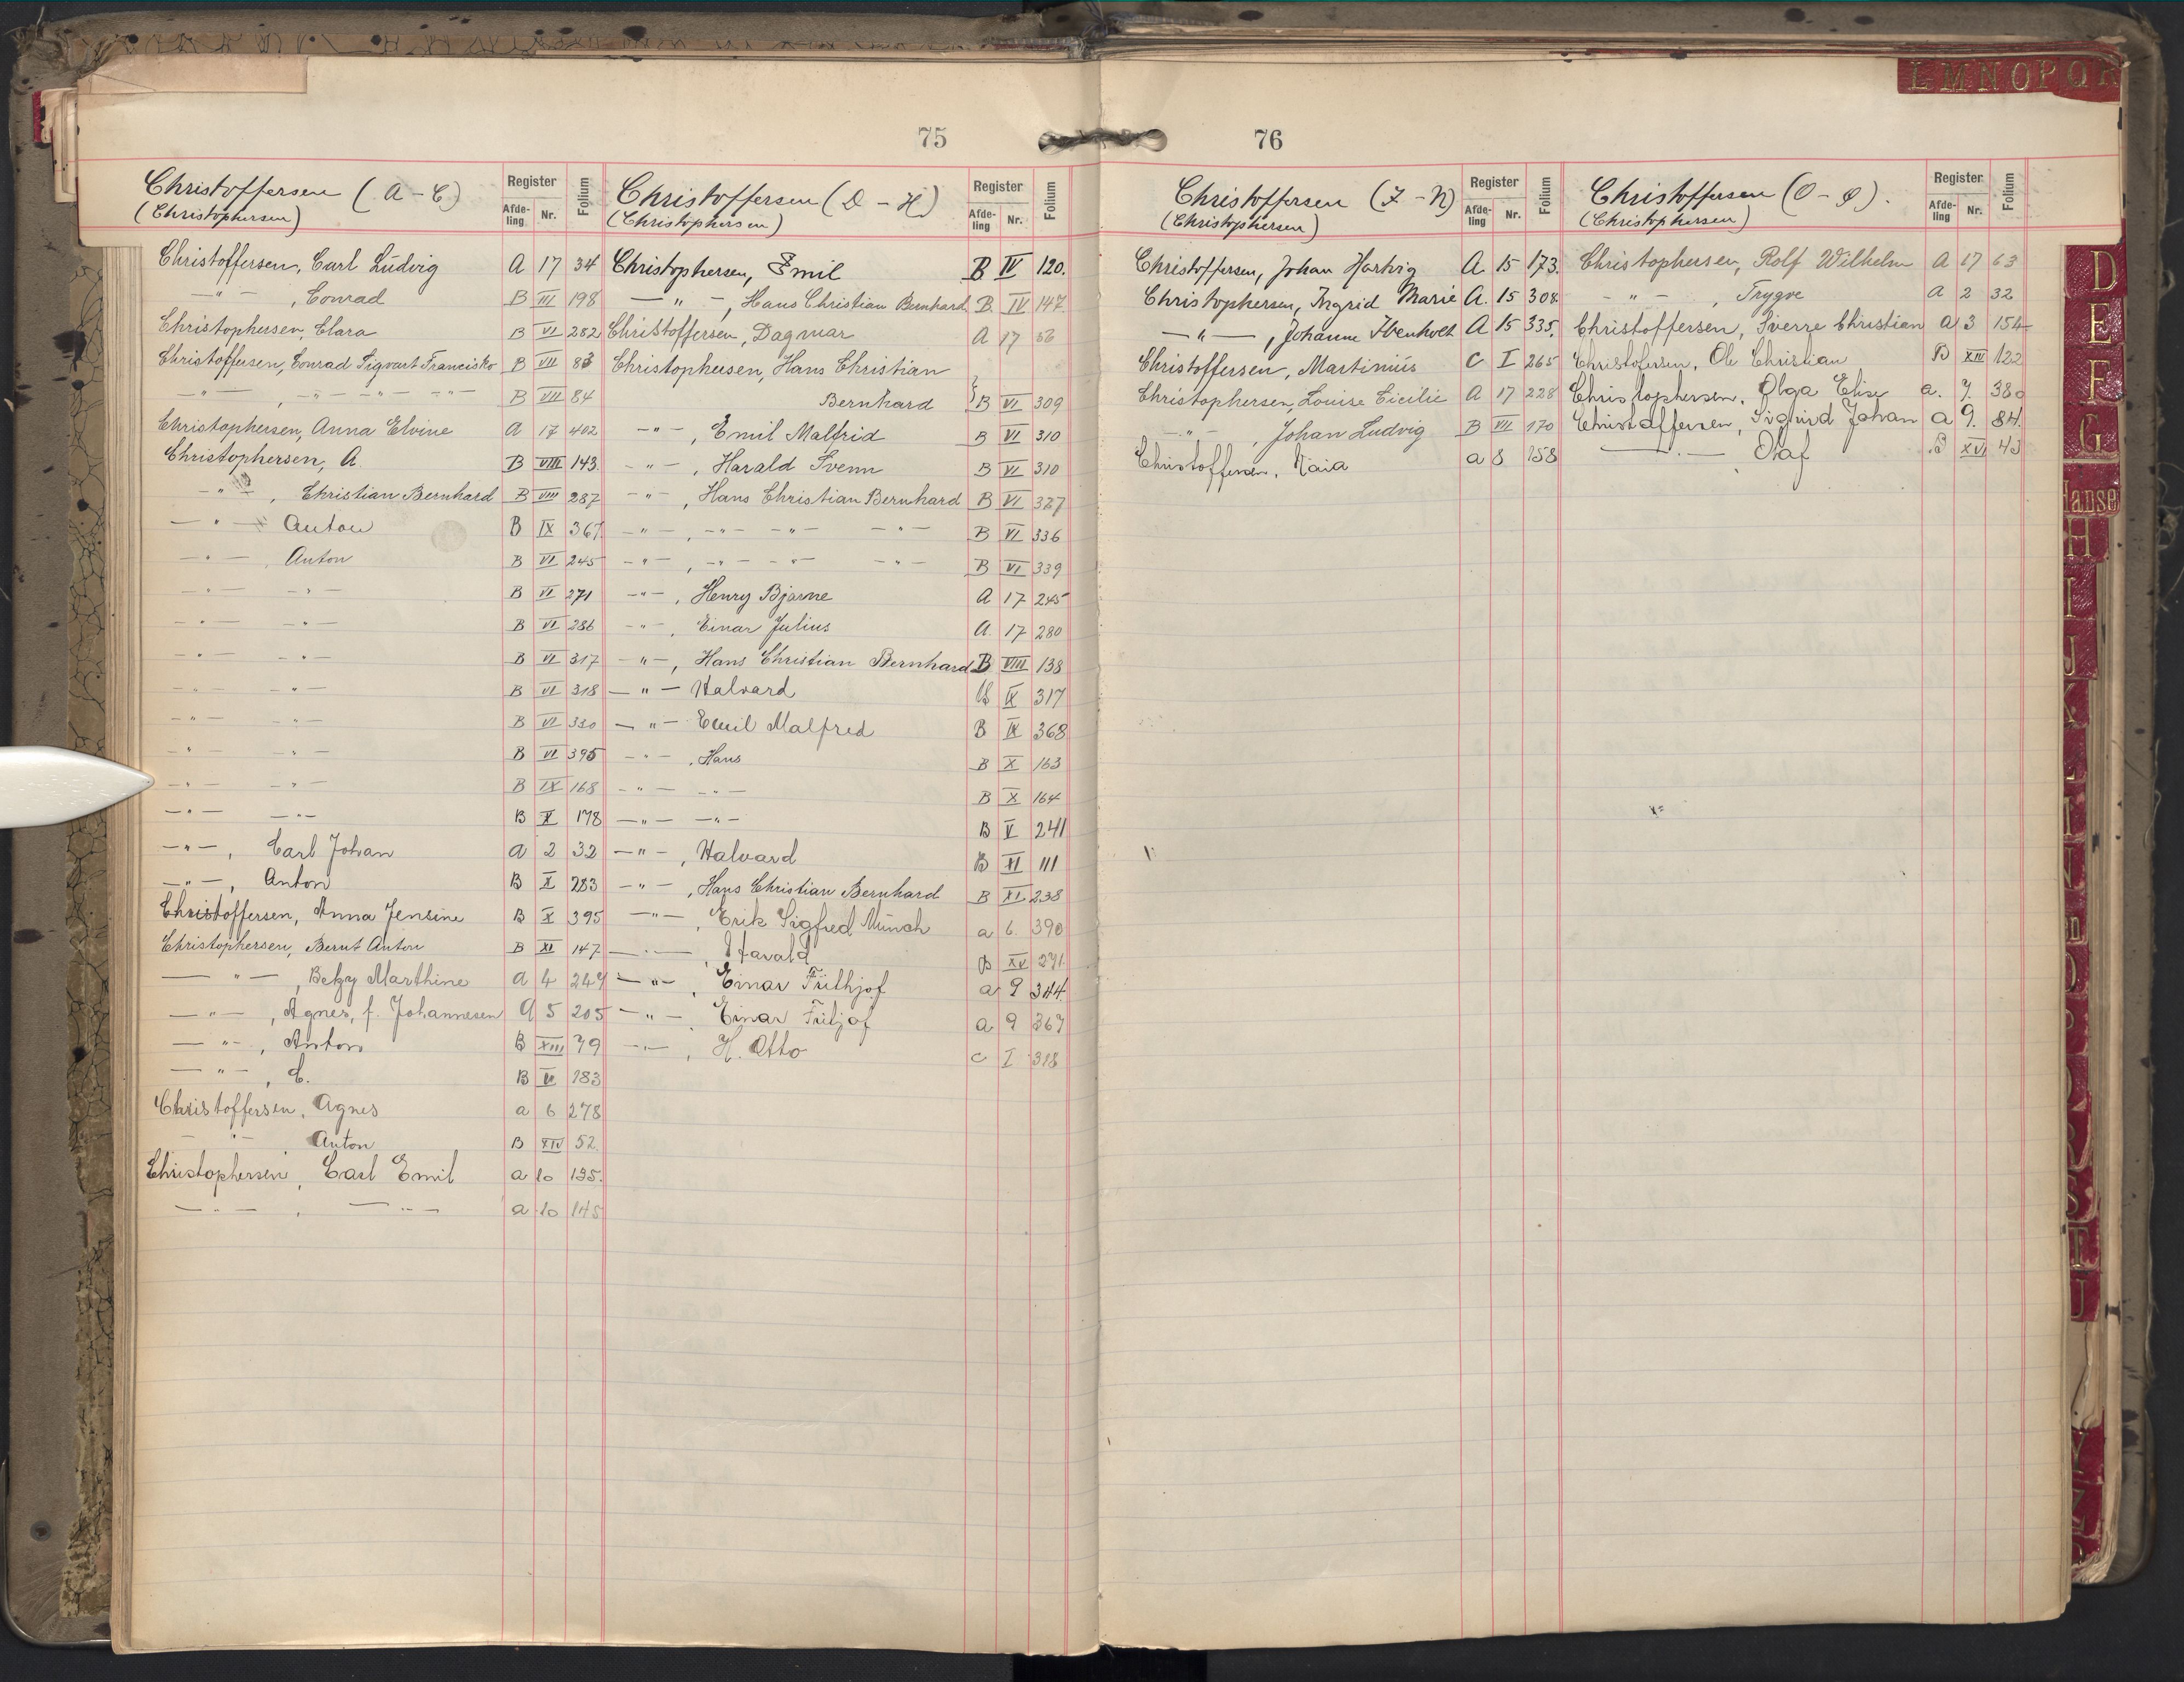 LMNOPQR
75
Christoffersen (A - C)
(Christophersen)
Register
Afde-ling Nr. Folium
Christoffersen, Carl Ludvig A 17 34
—"—, Conrad B III 198
Christophersen, Clara B VI 282
Christoffersen, Conrad Sigvart Francisko B VII 83
—"—, —"— —"— —"— B VII 84
Christophersen, Anna Elvine A 17 402
Christophersen, A. B VIII 143.
—"—, Christian Bernhard B VIII 287
—"— Anton B IX 367
—"— Anton B VI 245
—"— —"— B VI 271
—"— —"— B VI 286
—"— —"— B VI 317
—"— —"— B VI 318
—"— —"— B VI 330
—"— —"— B VI 395
—"— —"— B IX 168
—"— —"— B X 178
—"—, Carl Johan A 2 32
—"—, Anton B X 283
Christoffersen, Anna Jensine B X 395
Christophersen, Bernt Anton B XI 147
—"—, Marthine A 4 249
—"—, Agnes, f. Johannesen A 5 205
—"—, Anton B XIII 79
—"—, C. B 183
Christoffersen, Agnes a 6 278
—"— Anton B XIV 52.
Christophersen, Carl Emil a 10 135.
—"—, —"— a 10 145
Christoffersen (D - H)
(Christophersen)
Register
Afde-ling Nr. Folium
Christophersen, Emil B IV 120.
—"—, Hans Christian Bernhard B. IV 147.
Christoffersen, Dagmar A 17 56
Christophersen, Hans Christian
Bernhard } B VI 309
—"—, Emil Malfrid B VI 310
—"—, Harald Svenn B VI 310
—"—, Hans Christian Bernhard B VI 327
—"—, —"— —"— —"— B VI 336
—"—, —"— —"— —"— B VI 339
—"—, Henry Bjarne A 17 245
—"—, Einar Julius A. 17 280
—"—, Hans Christian Bernhard B VIII 138
—"— Halvard B IX 317
—"— Emil Malfred B IX 368
—"—, Hans B X 163
—"— —"— B X 164
—"— —"— B V 241
—"—, Halvard B XI 111
—"—, Hans Christian Bernhard B XI 238
—"—, Erik Sigfred Münch a 6. 390
—"—, Harald B XV 271.
—"—, Einar Frithjof a 9 344.
—"— Einar Fritjof a 9 367
—"—, H. Otto C I 318
76
Christoffersen (I - N)
(Christophersen)
Register
Afde-ling Nr. Folium
Christoffersen, Johan Hartvig A. 15 173.
Christophersen, Ingrid Marie A. 15 308.
—"—, Johanne Ibenholt A 15 335.
Christoffersen, Martinius C I 265
Christophersen, Louise Cicilie A 17 228
—"—, Johan Ludvig B VII 170
Christoffersen, Naia a 8 158
Christoffersen (O - Ø).
(Christophersen)
Register
Afde-ling Nr. Folium
Christophersen, Rolf Wilhelm A 17 63
—"—, Trygve A 2 32
Christoffersen, Sverre Christian A 3 154
Christofersen, Ole Christian B XIV 122
Christophersen, Olga Elise a. 7. 380
Christoffersen, Sigurd Johan a 9. 84.
—"— Olaf B XVI 43
D
E
F
G
Hanse
H
I
J
K
L
M
N
O
P
Q
R
S
T
U